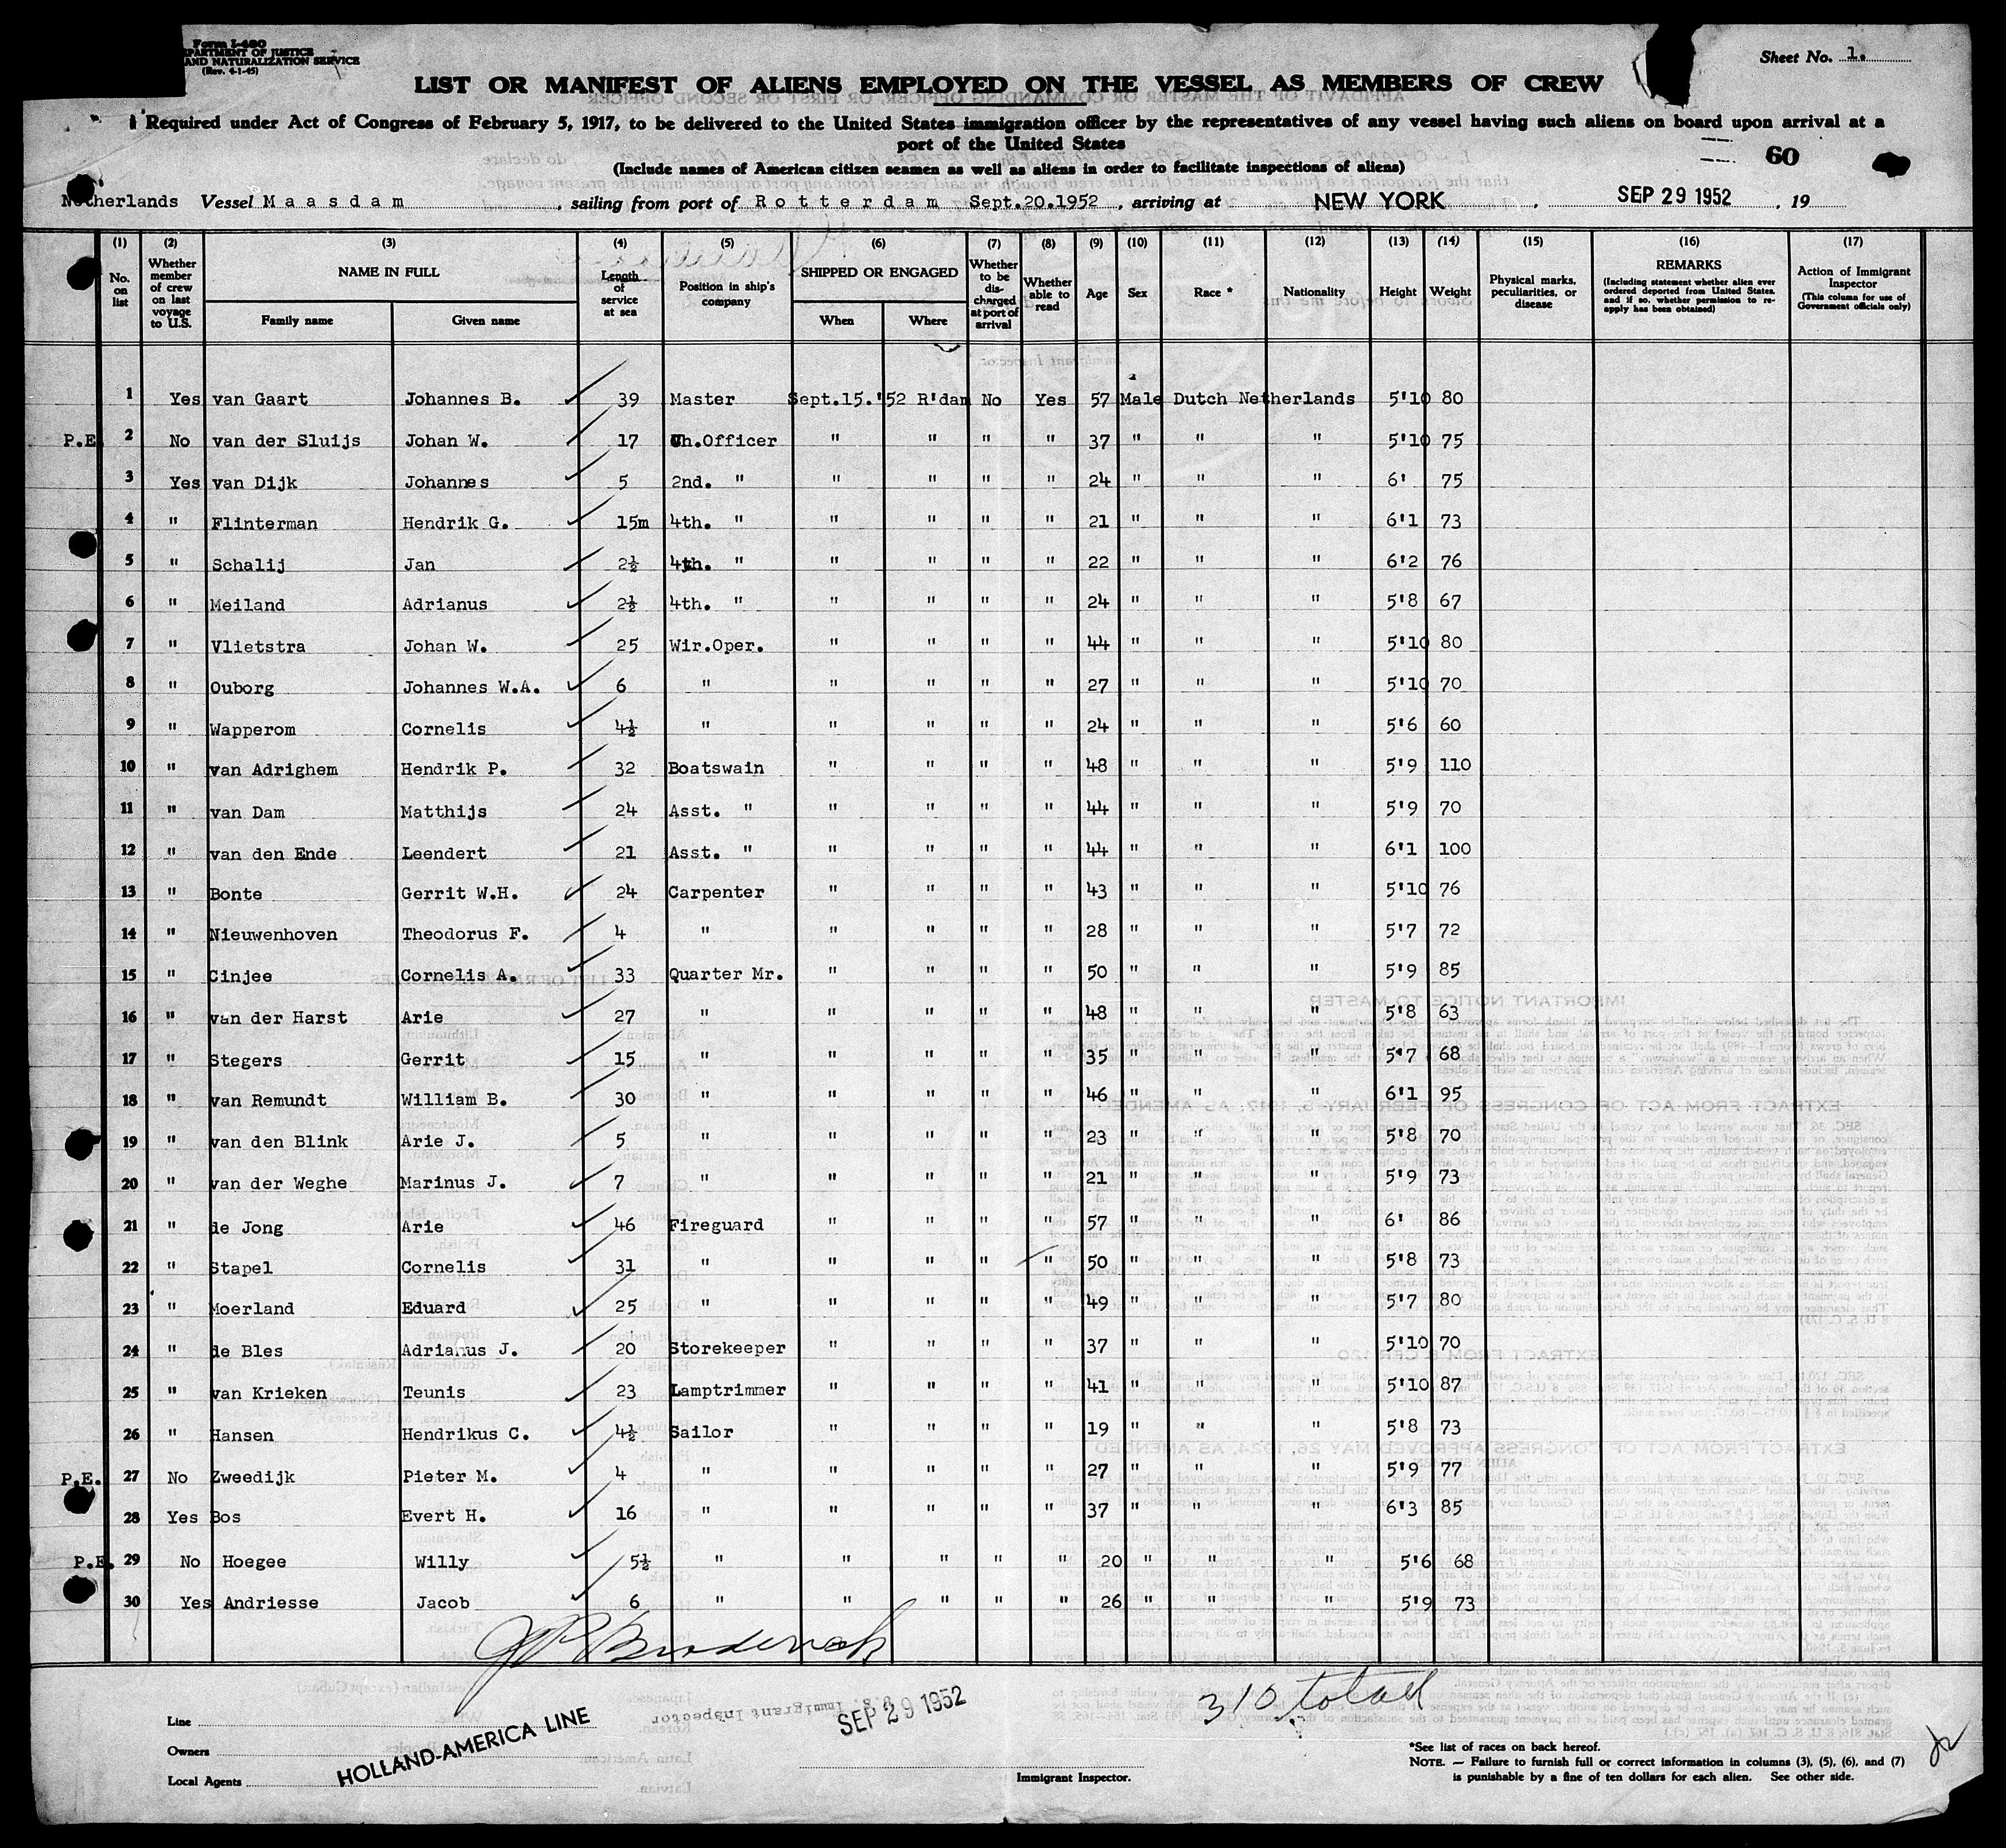 Form I-480
DEPARTMENT OF JUSTICE
AND NATURALIZATION SERVICE
(Rev. 4-1-45)
Sheet No. 1.
LIST OR MANIFEST OF ALIENS EMPLOYED ON THE VESSEL AS MEMBERS OF CREW
Required under Act of Congress of February 5, 1917, to be delivered to the United States immigration officer by the representatives of any vessel having such aliens on board upon arrival at a
port of the United States
60
(Include names of American citizen seamen as well as aliens in order to facilitate inspections of aliens)
Netherlands Vessel Maasdam, sailing from port of Rotterdam Sept.20.1952, arriving at NEW YORK, SEP 29 1952, 19
(1) (2) (3) (4) (5) (6) (7) (8) (9) (10) (11) (12) (13) (14) (15) (16) (17)
No. on list Whether member of crew on last voyage to U.S. NAME IN FULL Family name Given name Length of service at sea Position in ship's company SHIPPED OR ENGAGED When Where Whether to be discharged at port of arrival Whether able to read Age Sex Race * Nationality Height Weight Physical marks, peculiarities, or disease REMARKS (Including statement whether alien ever ordered deported from United States, and if so, whether permission to re-apply has been obtained) Action of Immigrant Inspector (This column for use of Government officials only)
1 Yes van Gaart Johannes B. 39 Master Sept.15.'52 R'dam No Yes 57 Male Dutch Netherlands 5'10 80
P.E. 2 No van der Sluijs Johan W. 17 Ch.Officer " " " " 37 " " " 5'10 75
3 Yes van Dijk Johannes 5 2nd. " " " " " 24 " " " 6' 75
4 " Flinterman Hendrik G. 15m 4th. " " " " " 21 " " " 6'1 73
5 " Schalij Jan 2½ 4th. " " " " " 22 " " " 6'2 76
6 " Meiland Adrianus 2½ 4th. " " " " " 24 " " " 5'8 67
7 " Vlietstra Johan W. 25 Wir.Oper. " " " " 44 " " " 5'10 80
8 " Ouborg Johannes W.A. 6 " " " " " 27 " " " 5'10 70
9 " Wapperom Cornelis 4½ " " " " " 24 " " " 5'6 60
10 " van Adrighem Hendrik P. 32 Boatswain " " " " 48 " " " 5'9 110
11 " van Dam Matthijs 24 Asst. " " " " " 44 " " " 5'9 70
12 " van den Ende Leendert 21 Asst. " " " " " 44 " " " 6'1 100
13 " Bonte Gerrit W.H. 24 Carpenter " " " " 43 " " " 5'10 76
14 " Nieuwenhoven Theodorus F. 4 " " " " " 28 " " " 5'7 72
15 " Cinjee Cornelis A. 33 Quarter Mr. " " " " 50 " " " 5'9 85
16 " van der Harst Arie 27 " " " " " 48 " " " 5'8 63
17 " Stegers Gerrit 15 " " " " " 35 " " " 5'7 68
18 " van Remundt William B. 30 " " " " " 46 " " " 6'1 95
19 " van den Blink Arie J. 5 " " " " " 23 " " " 5'8 70
20 " van der Weghe Marinus J. 7 " " " " " 21 " " " 5'9 73
21 " de Jong Arie 46 Fireguard " " " " 57 " " " 6' 86
22 " Stapel Cornelis 31 " " " " " 50 " " " 5'8 73
23 " Moerland Eduard 25 " " " " " 49 " " " 5'7 80
24 " de Bles Adrianus J. 20 Storekeeper " " " " 37 " " " 5'10 70
25 " van Krieken Teunis 23 Lamptrimmer " " " " 41 " " " 5'10 87
26 " Hansen Hendrikus C. 4½ Sailor " " " " 19 " " " 5'8 73
P.E. 27 No Zweedijk Pieter M. 4 " " " " " 27 " " " 5'9 77
28 Yes Bos Evert H. 16 " " " " " 37 " " " 6'3 85
P.E. 29 No Hoegee Willy 5½ " " " " " 20 " " " 5'6 68
30 Yes Andriesse Jacob 6 " " " " " 26 " " " 5'9 73
Broderick
310 total
Line
Owners
Local Agents
HOLLAND-AMERICA LINE
U.S. Immigrant Inspector
SEP 29 1952
Immigrant Inspector.
*See list of races on back hereof.
NOTE. — Failure to furnish full or correct information in columns (3), (5), (6), and (7)
is punishable by a fine of ten dollars for each alien. See other side.